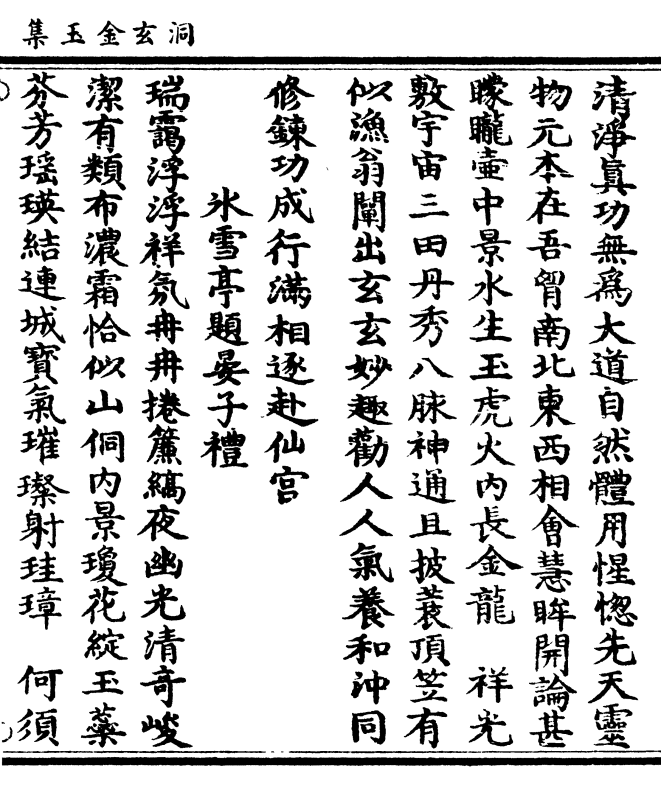 洞玄金玉集
清淨真功無為大道自然體用惺惚先天靈
物元本在吾胷南北東西相會慧眸開論甚
矇矓壷中景水生玉虎火内長金龍　祥光
敷宇宙三田丹秀八脉神通且披蓑頂笠有
似漁翁闡出玄玄妙趣勸人人氣養和沖同
修鍊功成行滿相逐赴仙宫
氷雪亭題晏子禮
瑞靄浮浮祥氛冉冉捲簾縞夜幽光清奇峻
潔有類布濃霜恰似山侗内景瓊花綻玉蘂
芬芳瑶瑛結連城寶氣璀璨射珪璋　何須